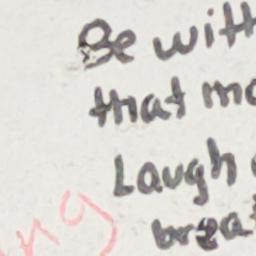 Be with
that mo
Laugh
breat
ng